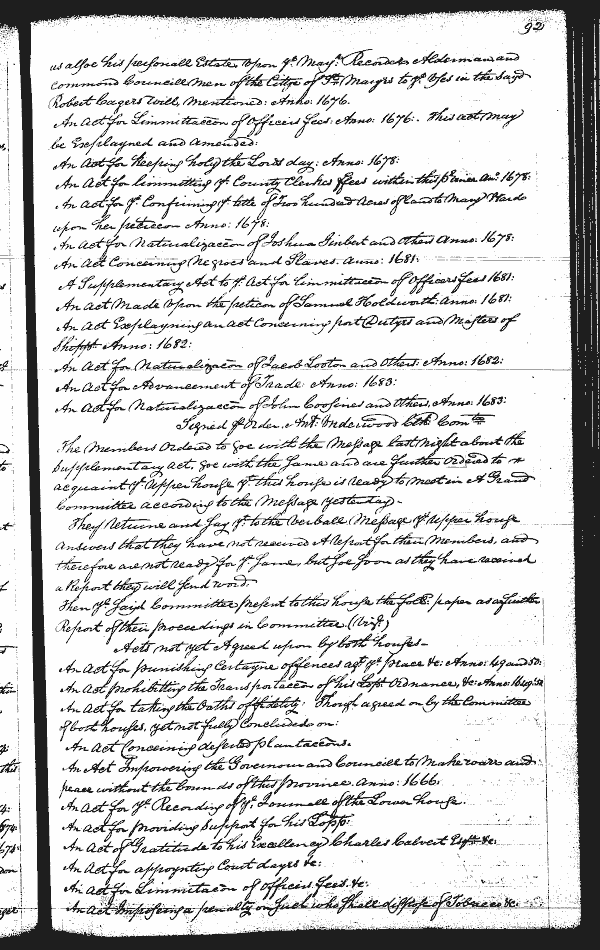 92
as alsoe his personall Estate Upon ye Mayr. Recorder Alderman and
common Councill men of the Citty of St. Maryes to ye Uses in the sayd
Robert Cagers Will, mentioned: Anno: 1676.
An Act for Limmittacon of Officers fees: Anno: 1676:. This act may
be Explayned and amended:
An Act for keeping holy the Lords day: Anno: 1678:
An Act for Limmitting ye County Clerkes ffees within this province Ano: 1678:
An Act for ye Confirming ye title of Two hundred Acres of land to Mary
upon her peticon Anno: 1678:
An Act for Naturalizacon of Joshua and others Anno: 1678:
An Act Concerning Negroes and Slaves. Anno: 1681:
A Supplementary Act to ye Act for Limmittacon of Officers fees 1681:
An Act Made Upon the peticon of Samuel Holdsworth: Anno: 1681:
An Act Explayning an act Concerning port Dutyes and Masters of
Shipps. Anno: 1682:
An Act for Naturalizacon of Jacob Looton and Others: Anno: 1682:
An Act for Advancement of Trade Anno: 1683:
An Act for Naturalizacon of John and Others, Anno: 1683:
Signed p Order. Ant: Underwood Clk Comtee
The Members Ordered to goe with the Message last night about the
Supplementary Act, goe with the Same and are further Ordered to
acquaint ye Upper house yt this house is ready to meet in A Grand
Committee according to the Message yesterday.
They returne and say yt to the Verball Message ye upper house
answers that they have not received A report for their Members, and
therefore are not ready for ye Same, but soe soon as they have received
a Report they will send word.
Then ye Said Committee present to this house the foll: paper as a further
Report of their proceedings in Committee. (Vizt)
Acts not yet Agreed upon by both houses
An Act for punishing Certayne offences agt ye peace &c: Anno: 49 and 50:
An Act prohibitting the Transportacon of his Lopps Ordnance, &c: Anno:
An Act for taking the Oaths of fidelity: Though agreed on by the Committee
of both houses, yet not fully Concluded on:
An Act Concerning deserted plantacons.
An Act Impowering the Governour and Councill to Make warr and
peace without the bounds of this Province. Anno: 1666:
An Act for ye Recording of ye Journall of the Lower house.
An Act for providing Support for his Lopp:
An Act of Gratitude to his Excellency Charles Calvert Esqr &c.
An Act for appoynting Court dayes &c:
An Act for Limmittacon of officers fees. &c:
An Act Imposing a penalty on such who shall dispose of Tobacco &c.